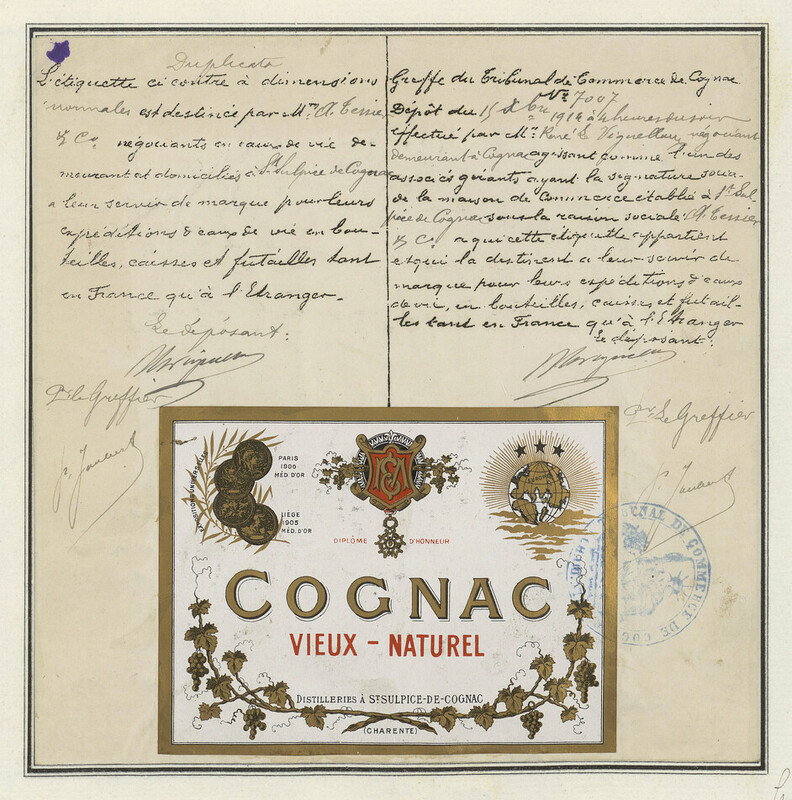 Duplicata
L'étiquette ci contre à dimensions
normales est destinée par M.rs A. Tessier
& Co. négociants en eaux de vie de-
meurant et domiciliés à St Sulpice de Cognac
a leur servir de marque pour leurs
expéditions d'eaux de vie en bou-
teilles, caisses et futailles tant
en France qu'à l'Etranger-
Le déposant:
Pr. le Greffier
Greffe du Tribunal de Commerce de Cognac
No 7007
Dépôt du 15 Xbre 1914 à heures du soir
effectué par Mr. René Le Vignellou, négociant
demeurant à Cognac agissant comme l'un des
associés gérants ayant la signature socia-
le de la maison de Commerce établie à St. Sul-
pice de Cognac sous la raison sociale: A. Tessier
& Co a qui cette étiquette appartient
et qui la destinent a leur servir de
marque pour leurs expéditions d'eaux
de vie, en bouteilles, caisses et futail-
les tant en France qu'à l'Etranger
Le déposant:
Pr. Le Greffier
EXPOSITIONS UNIVERSELLES
PARIS
1900
MÉD. D'OR
LIÈGE
1905
MÉD. D'OR
DIPLÔME D'HONNEUR
EUROPE
COGNAC
VIEUX - NATUREL
DISTILLERIES À ST SULPICE-DE-COGNAC
(CHARENTE)
TRIBUNAL DE COMMERCE DE COG